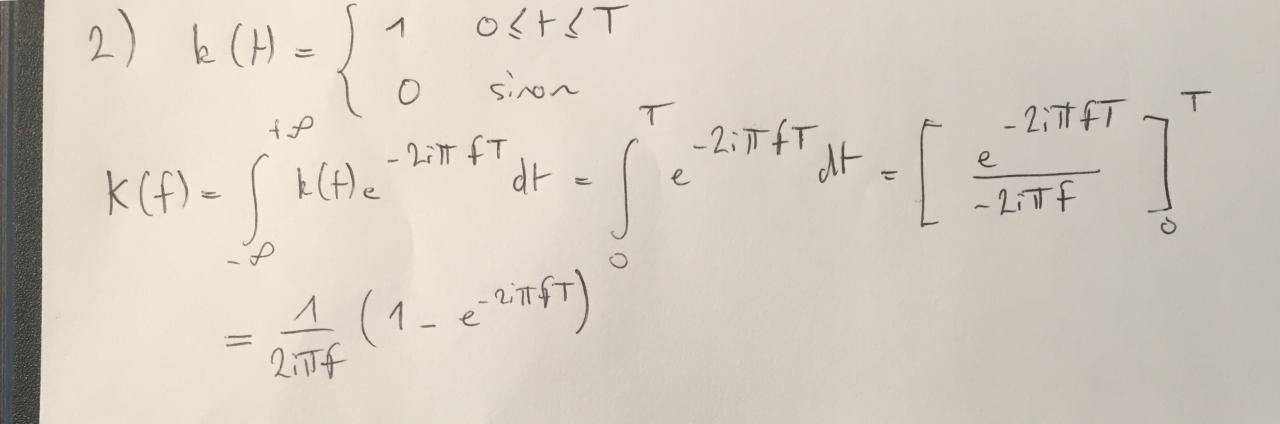 2) k(t) = { 1 0 ≤ t ≤ T
0 sinon
K(f) = ∫_{-∞}^{+∞} k(t) e^{-2iπfT} dt = ∫_0^T e^{-2iπfT} dt = [ e^{-2iπfT} / -2iπf ]_0^T
= 1/2iπf (1 - e^{-2iπfT})